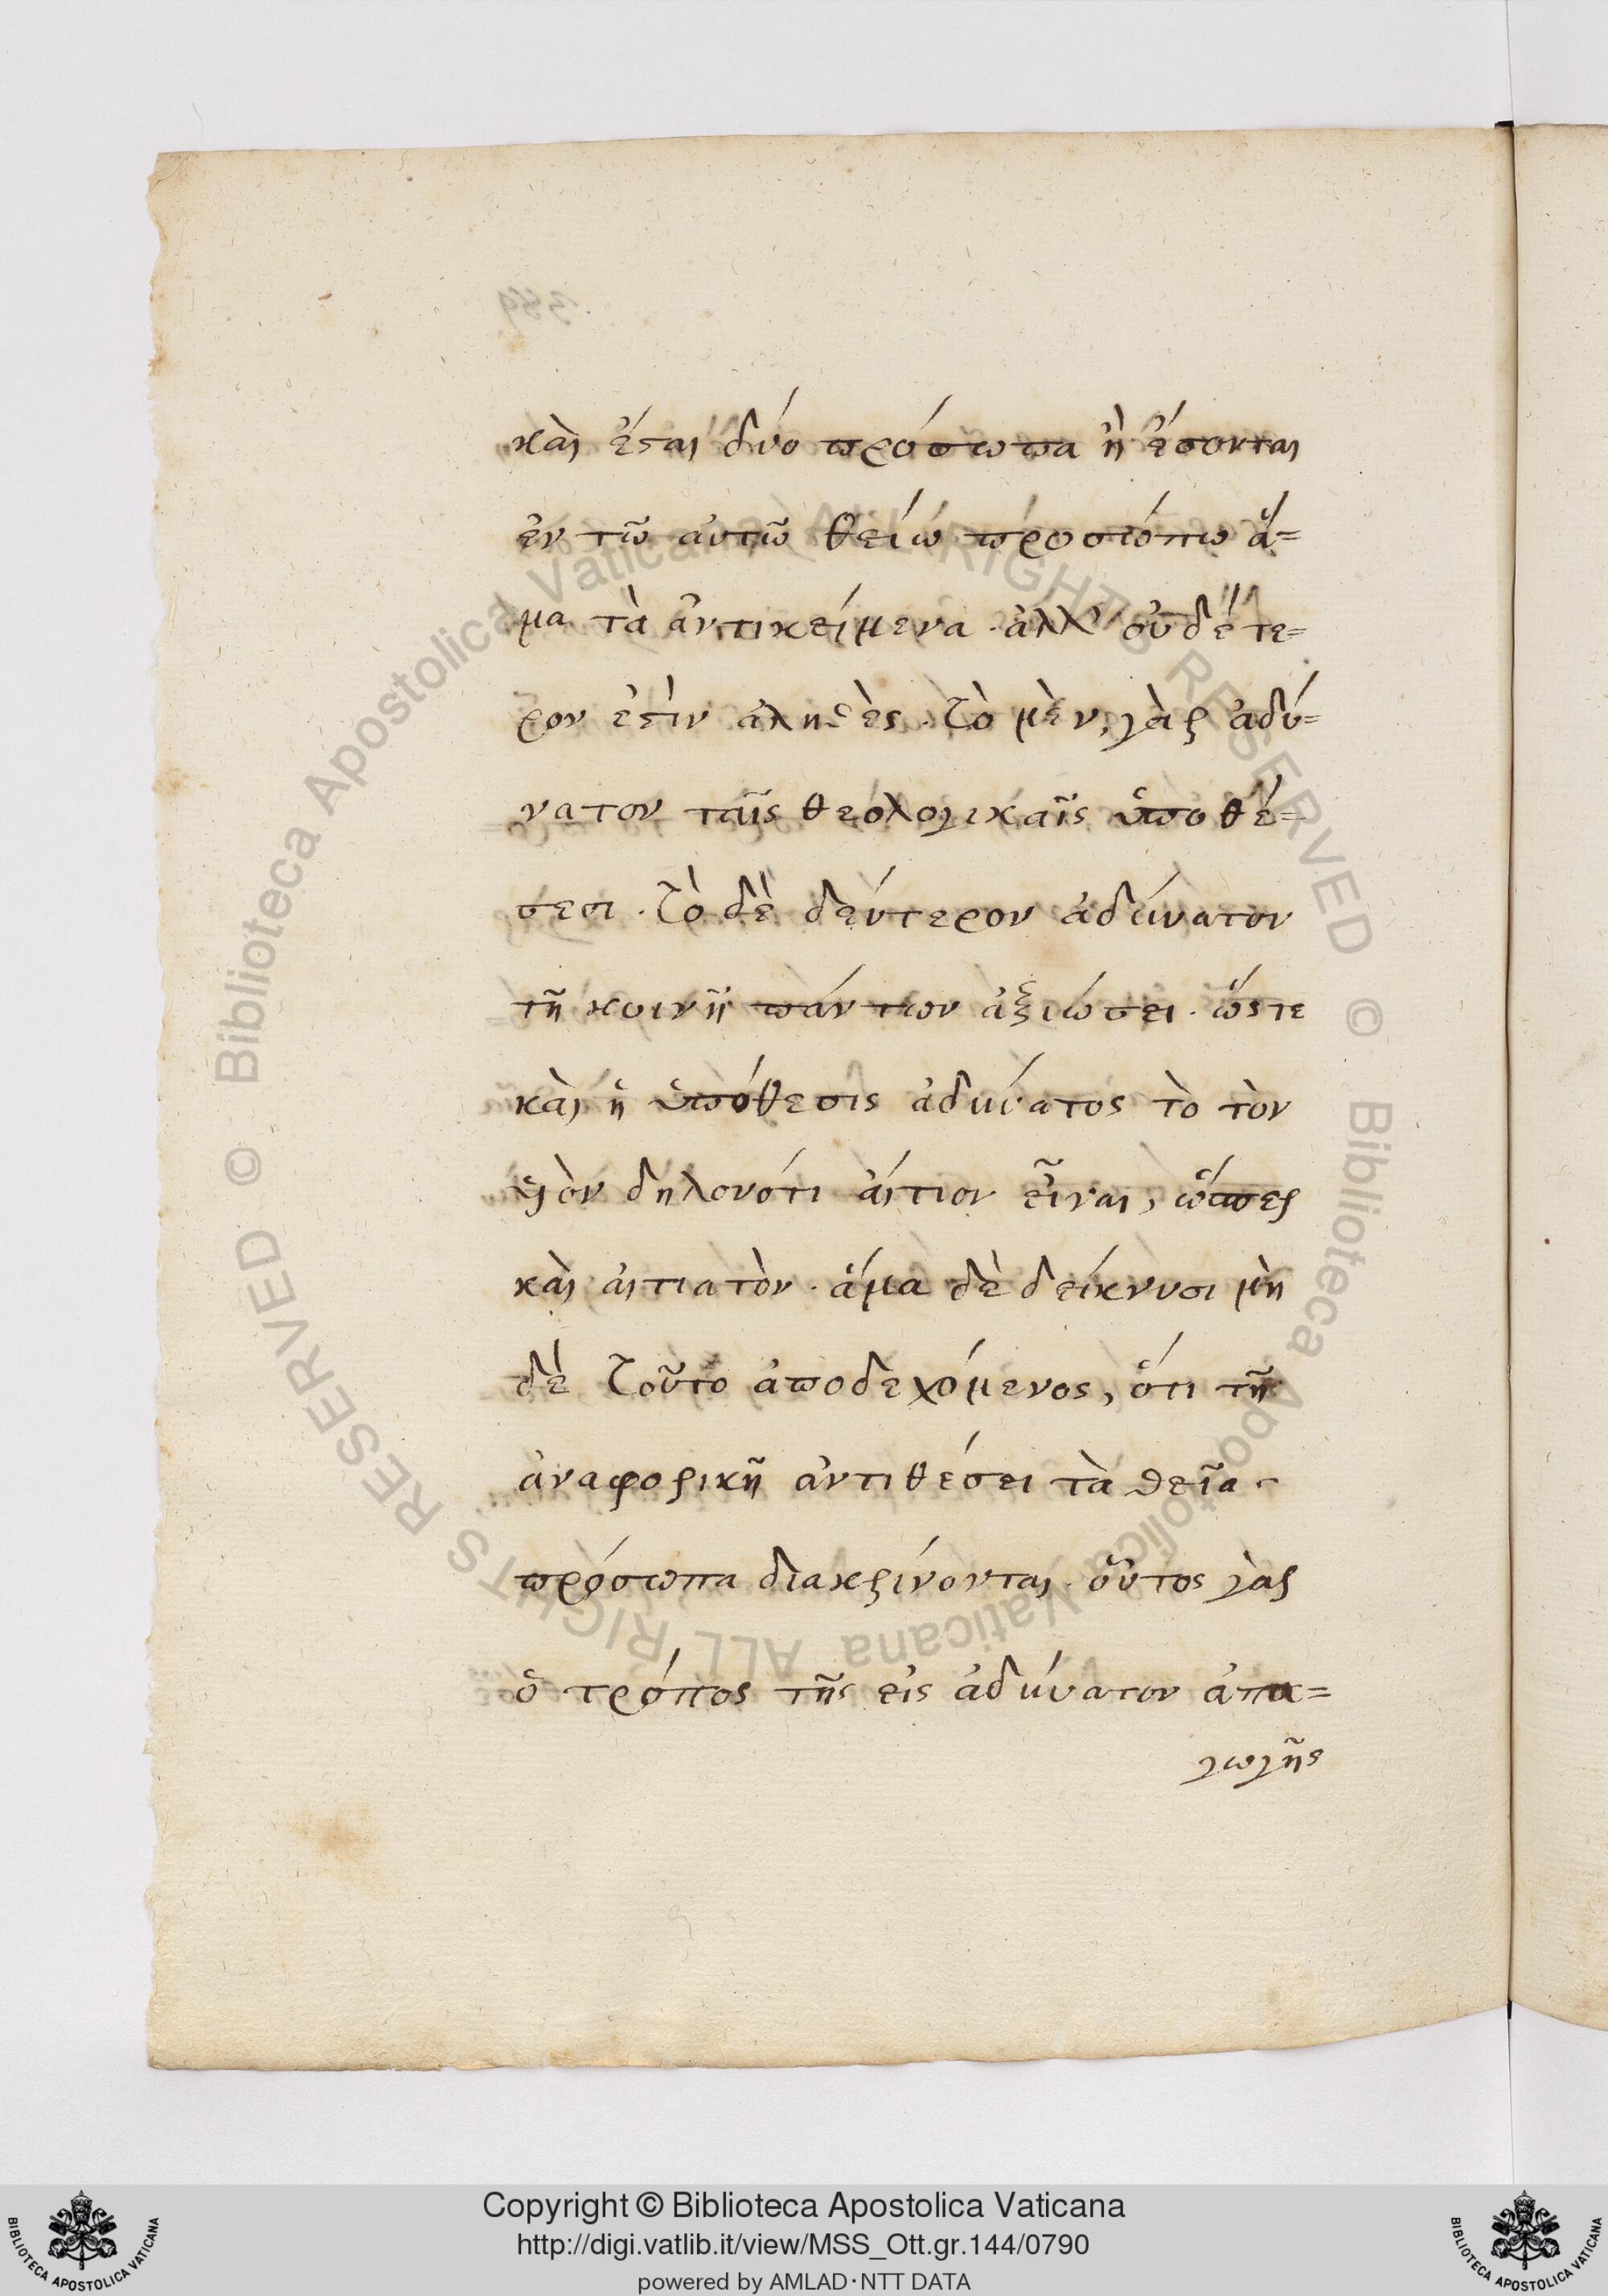 καὶ ἔσται δύο πρόσωπα ἢ ἔσονται
ἐν τῶ αὐτῶ θείω προσώπω ἅ=
μα τὰ ἀντικείμενα · ἀλλ' οὐδέτε=
ρον ἐστὶν ἀληθὲς · τὸ μὲν γὰρ ἀδύ=
νατον ταῖς θεολογικαῖς ὑποθέ=
σεσι · τὸ δὲ δεύτερον ἀδύνατον
τῆ κοινῆ πάντων ἀξιώσει · ὥστε
καὶ ἡ ὑπόθεσις ἀδύνατος τὸ τὸν
υἱὸν δηλονότι αἴτιον εἶναι, ὥσπερ
καὶ αἰτιατὸν · ἅμα δὲ δείκνυσι μὴ
δὲ τοῦτο ἀποδεχόμενος, ὅτι τῆ
ἀναφορικῆ ἀντιθέσει τὰ θεῖα
πρόσωπα διακρίνονται · οὗτος γὰρ
ὁ τρόπος τῆς εἰς ἀδύνατον ἀπα=
γωγῆς
© Biblioteca Apostolica Vaticana ALL RIGHTS RESERVED © Biblioteca Apostolica Vaticana ALL RIGHTS RESERVED
Copyright © Biblioteca Apostolica Vaticana
http://digi.vatlib.it/view/MSS_Ott.gr.144/0790
powered by AMLAD·NTT DATA
BIBLIOTECA APOSTOLICA VATICANA
BIBLIOTECA APOSTOLICA VATICANA